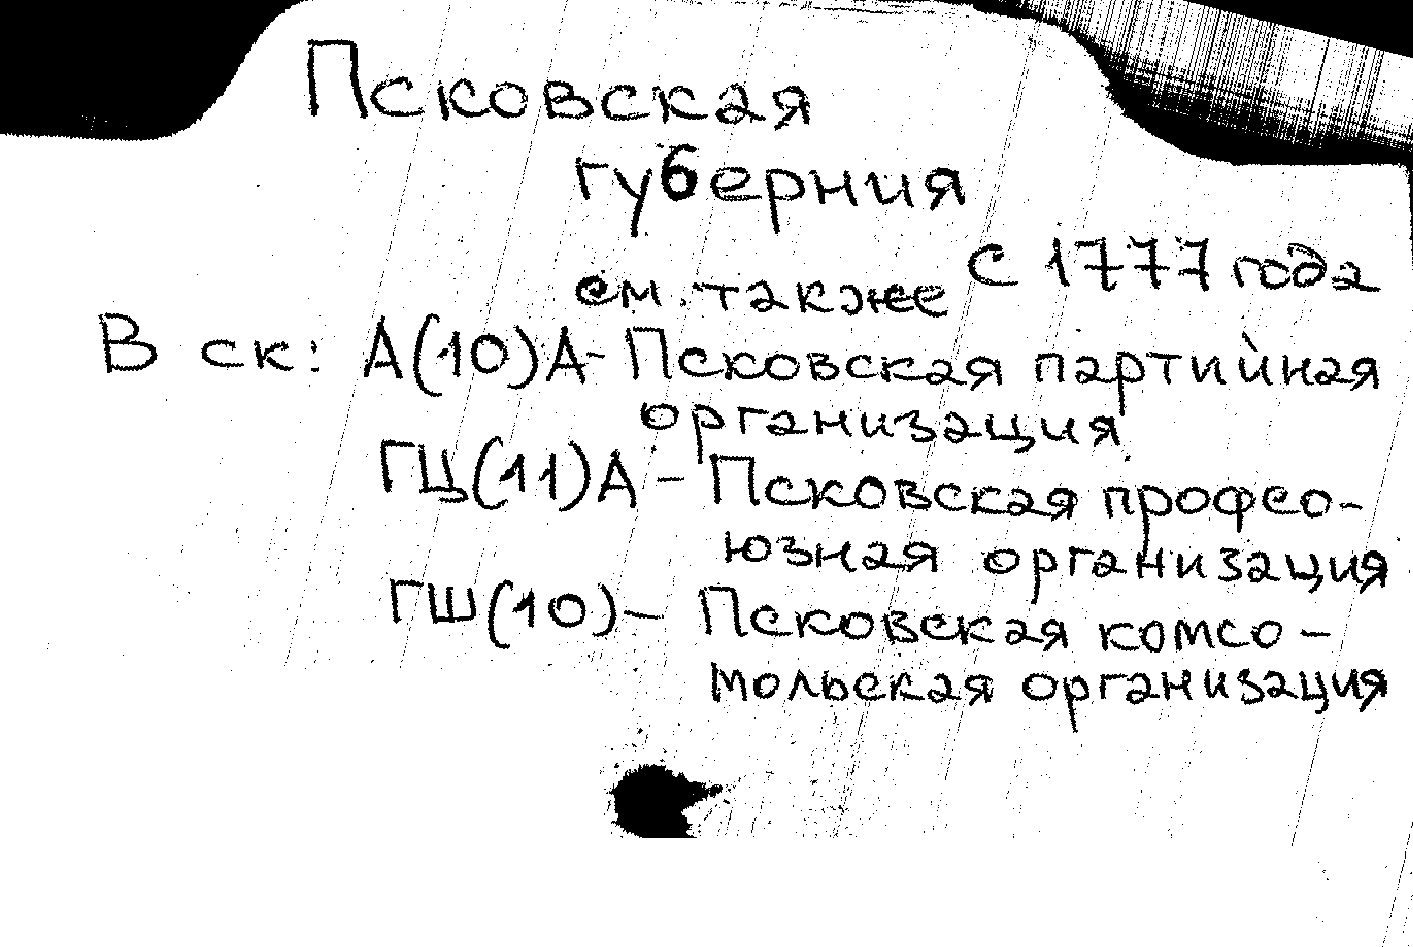 Псковская
губерния
с 1777 года
см. также
В ск: А(10)А- Псковская партийная
организация
ГЦ(11)А - Псковская профсо-
юзная организация
ГШ(10) - Псковская комсо-
мольская организация